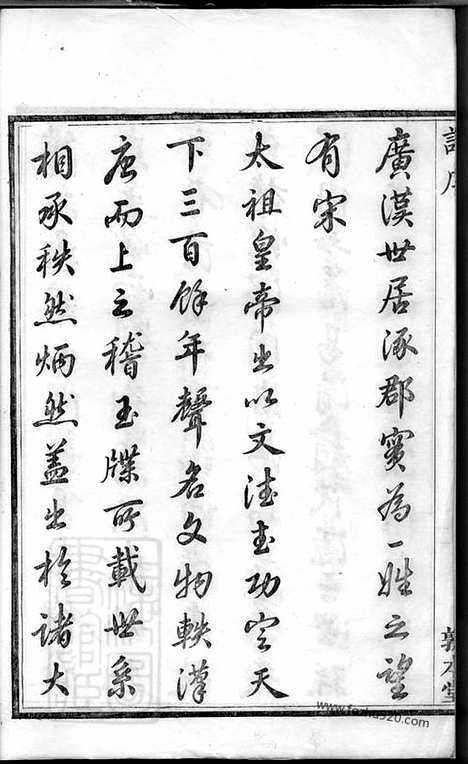 廣漢世居涿郡寔為一姓之望
有宋
太祖皇帝出以文法武功定天
下三百餘年聲名文物軼漢
唐而上之稽玉牒所載世系
相承秩然炳然蓋出於諸大
敦本堂
www.fozhu920.com